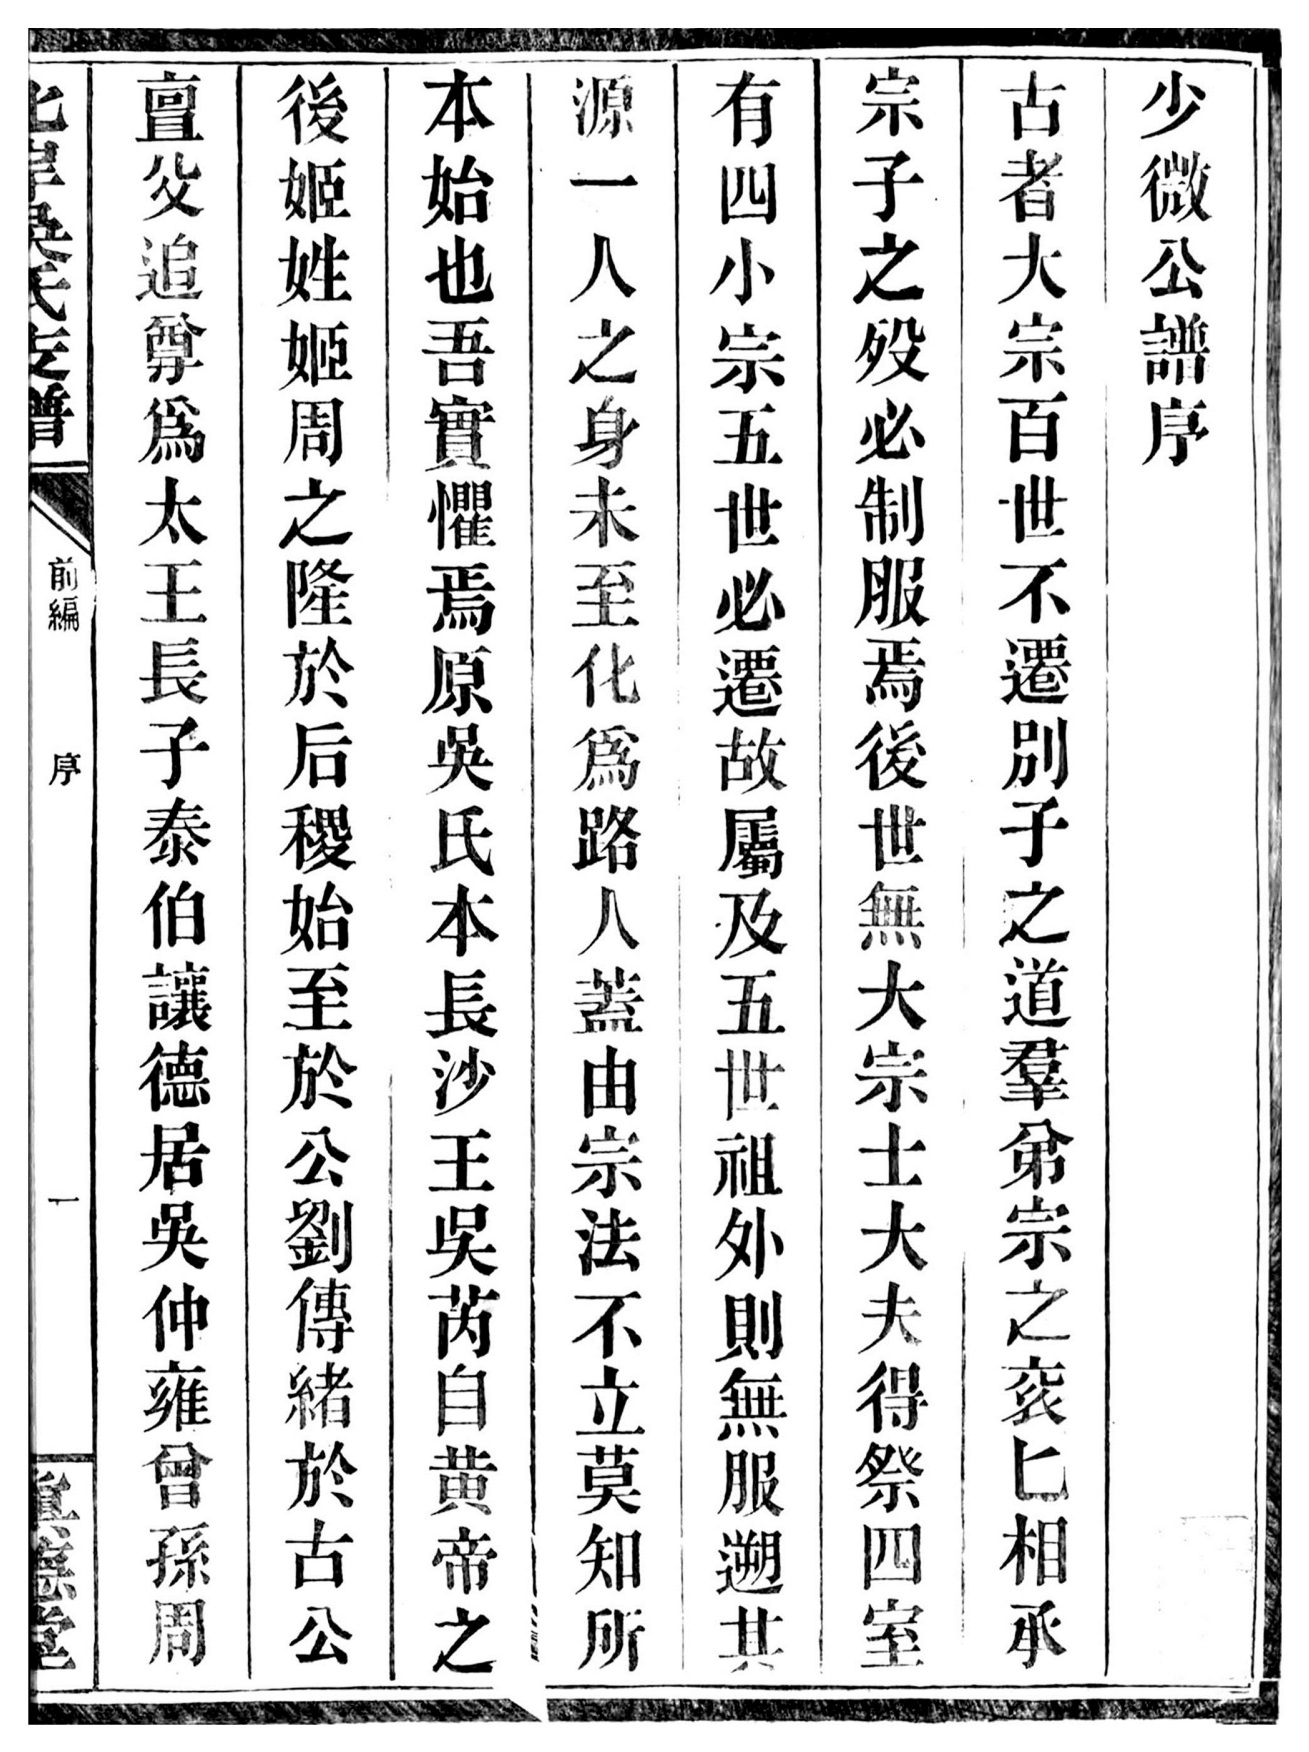 少微公譜序
古者大宗百世不遷別子之道羣弟宗之衮匕相承
宗子之歿必制服焉後世無大宗士大夫得祭四室
有四小宗五世必遷故屬及五世祖外則無服遡其
源一人之身未至化爲路人蓋由宗法不立莫知所
本始也吾實懼焉原吳氏本長沙王吳芮自黃帝之
後姬姓姬周之隆於后稷始至於公劉傳緒於古公
亶父追尊爲太王長子泰伯讓德居吳仲雍曾孫周
北岸吳氏支譜
前編
序
一
堂